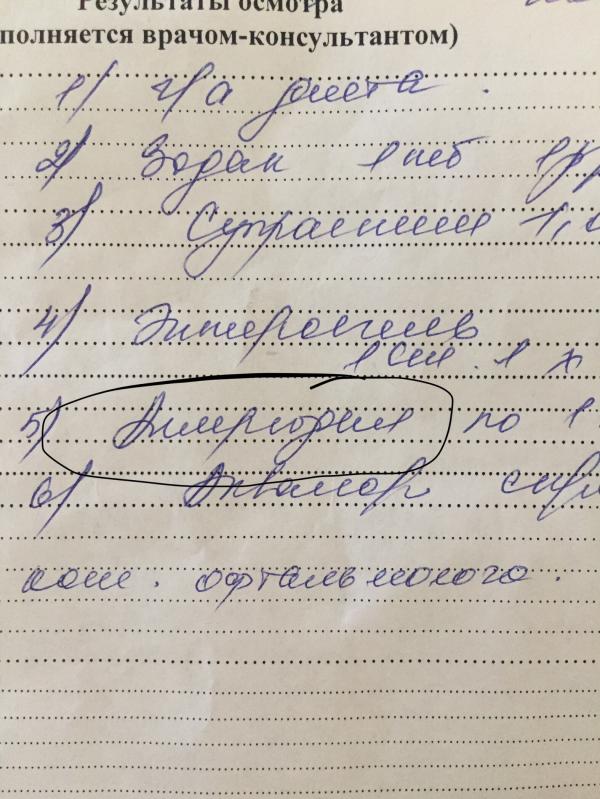 Результаты осмотра
полняется врачом-консультантом)
1) г/а диета.
2) Зодак 1 таб 1 р
3) Супрастин 1,
4) Энтеросгель
1 ст. 1 х
5) Аллергодил по 1
6) Аквамор
конс. офтальмолога.